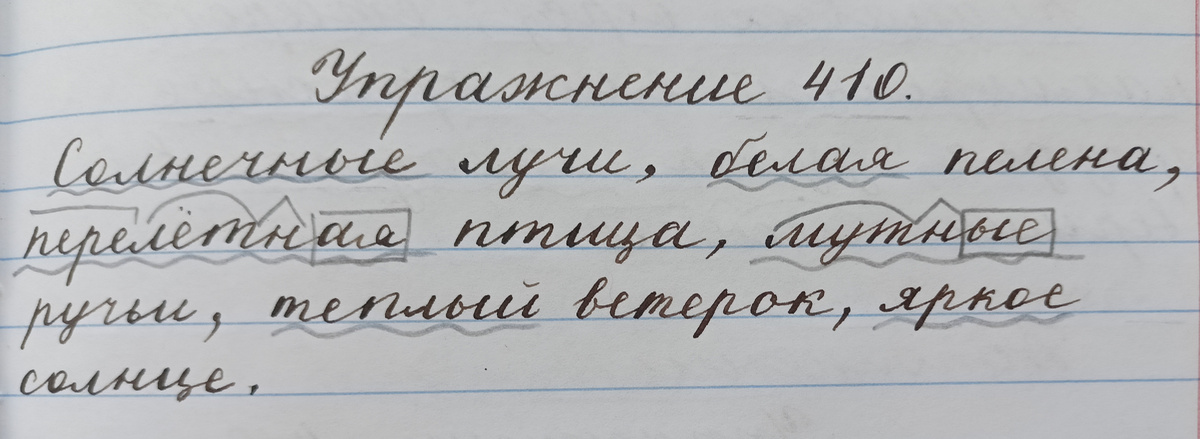 Упражнение 410.
Солнечные лучи, белая пелена,
перелётная птица, мутные
ручьи, теплый ветерок, яркое
солнце.